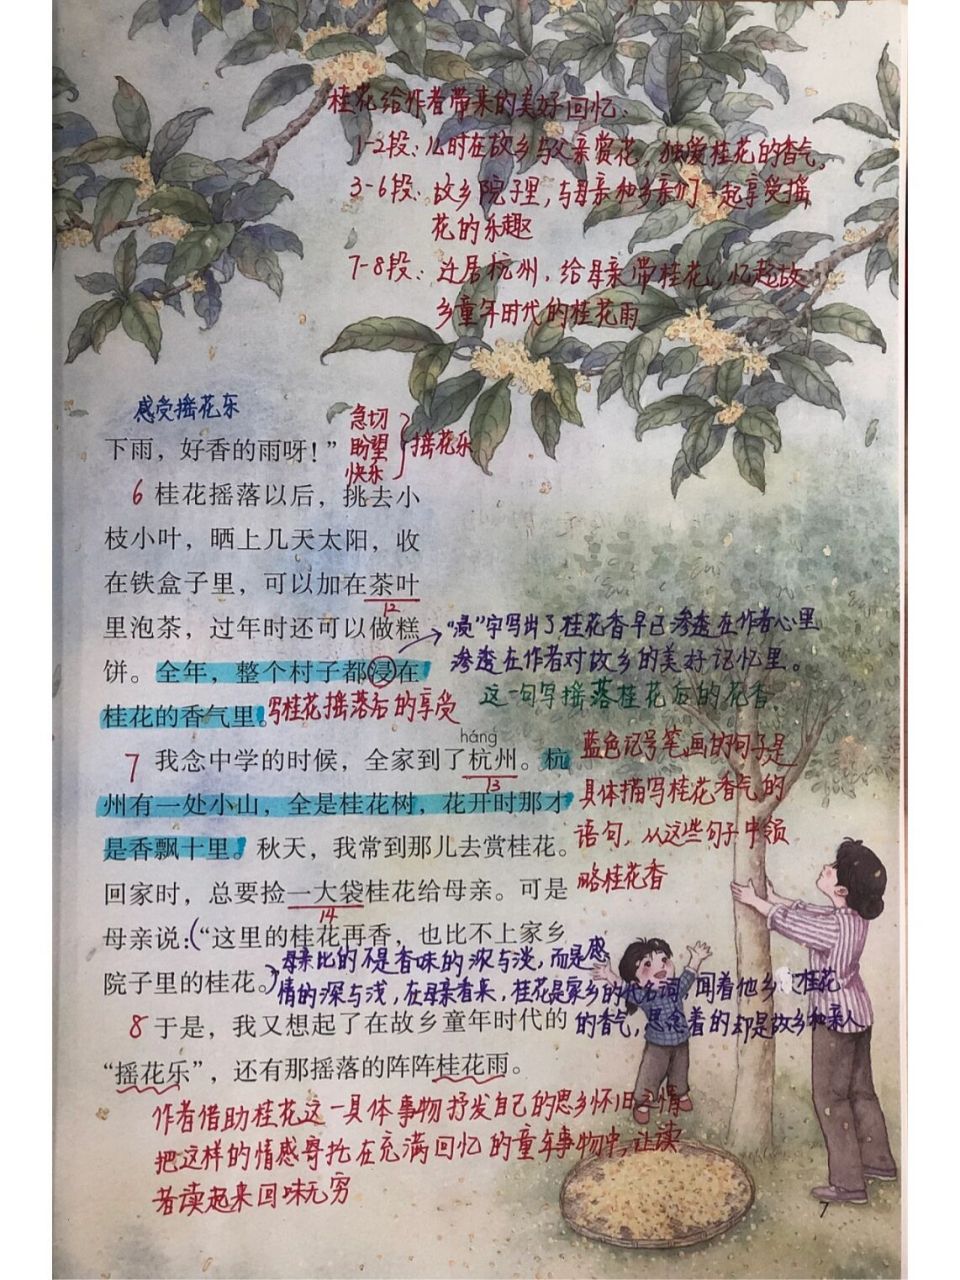 桂花给作者带来的美好回忆:
1-2段:儿时在故乡与父亲赏花,独爱桂花的香气。
3-6段:故乡院子里,与母亲和乡亲们一起享受摇
花的乐趣
7-8段:迁居杭州,给母亲带桂花,忆起故
乡童年时代的桂花雨
感受摇花乐
急切
盼望
快乐
摇花乐
下雨,好香的雨呀!”
6 桂花摇落以后,挑去小
枝小叶,晒上几天太阳,收
在铁盒子里,可以加在茶叶
12
里泡茶,过年时还可以做糕
饼。全年,整个村子都浸在
桂花的香气里。
“浸”字写出了桂花香早已渗透在作者心里
渗透在作者对故乡的美好记忆里。
这一句写摇落桂花后的花香。
写桂花摇落后的享受
háng
7 我念中学的时候,全家到了杭州。杭
13
州有一处小山,全是桂花树,花开时那才
是香飘十里。秋天,我常到那儿去赏桂花。
回家时,总要捡一大袋桂花给母亲。可是
14
母亲说:(“这里的桂花再香,也比不上家乡
院子里的桂花。)
蓝色记号笔画的句子是
具体描写桂花香气的
语句,从这些句子中领
略桂花香
母亲比的不是香味的浓与淡,而是感
情的深与浅,在母亲看来,桂花是家乡的代名词,闻着他乡桂花
的香气,思念着的却是故乡和亲人
8 于是,我又想起了在故乡童年时代的
“摇花乐”,还有那摇落的阵阵桂花雨。
作者借助桂花这一具体事物抒发自己的思乡怀旧之情
把这样的情感寄托在充满回忆的童年事物中,让读
者读起来回味无穷
7